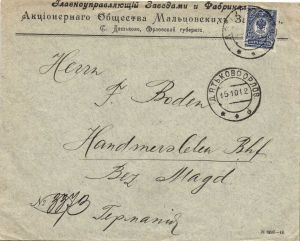 Главноуправляющій Заводами и Фабриками
Акціонернаго Общества Мальцовскихъ
С. Дятьково, Орловской губерніи.
ДЯТЬКОВО ОРЛОВ.
15 10 12
Herrn
F. Boden
Handmersleben Bhf.
Bez Magd
№ 3373
Германія